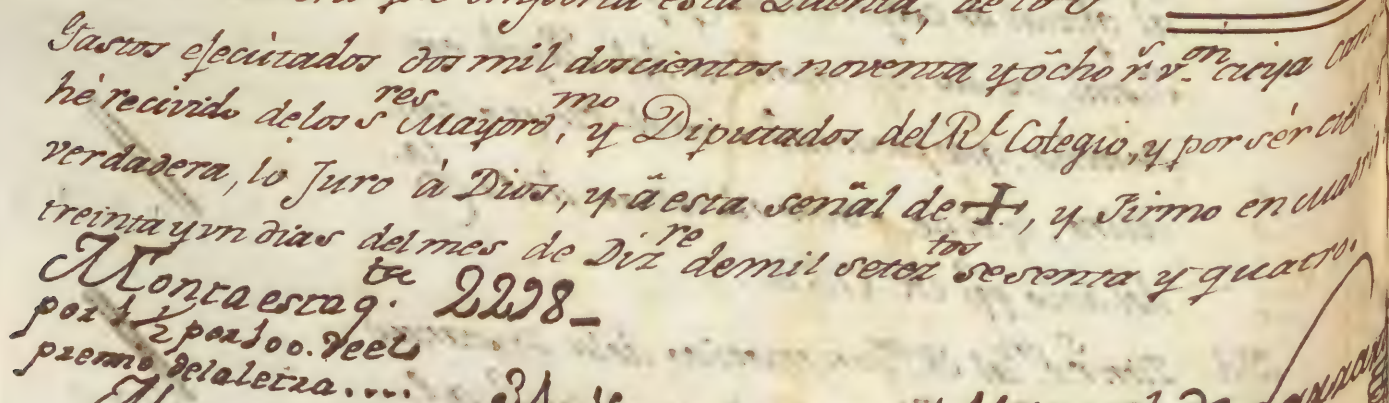 importa esta Quenta, de lo
Gastos ejecutados dos mil doscientos noventa y ôcho rˢ vᵒⁿ cuya
hé recivido de los sʳᵉˢ Mayordᵐᵒ, y Diputados del Rˡ. Colegio, y por sér
verdadera, lo Juro â Dios, y â esta señal de +, y Firmo en Madrid
treinta y un dias del mes de Dizʳᵉ de mil setezᵗᵒˢ sesenta y quatro.
Monta esta qᵗᵃ 2298_
por 1 1/2 por 100. de el
premio de la letra....